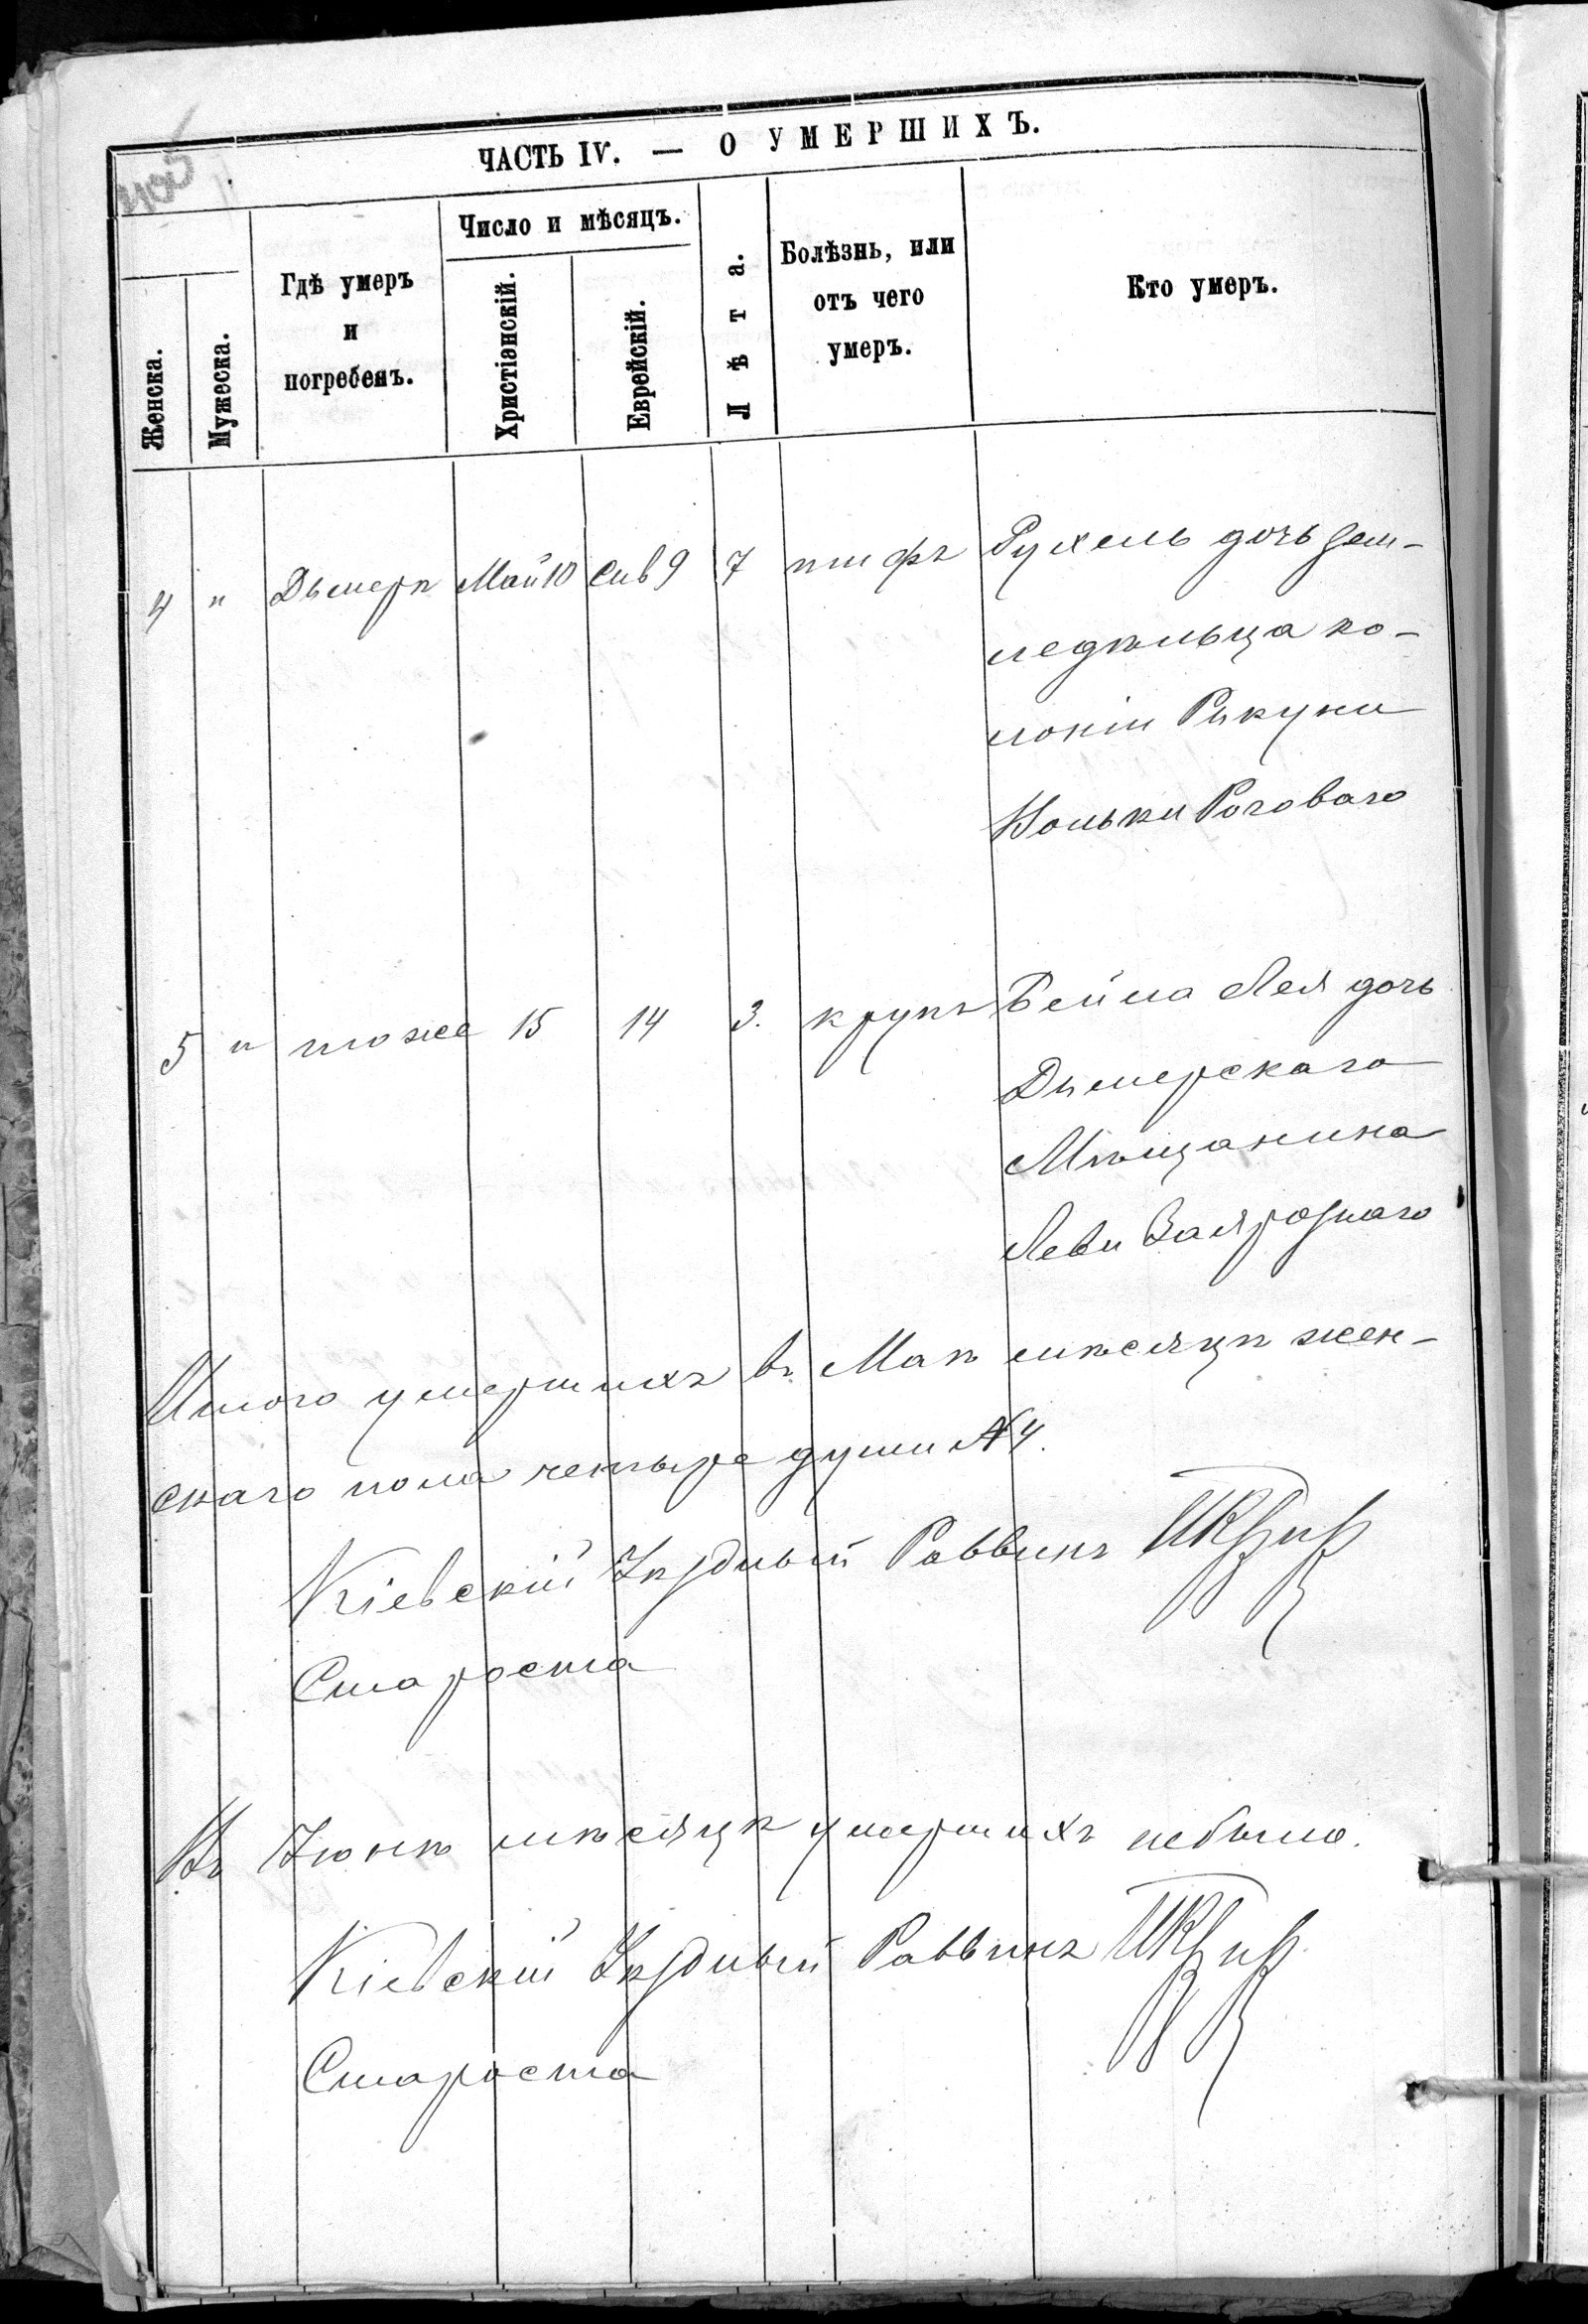 ЧАСТЬ IV. — О УМЕРШИХЪ.
Женска.
Мужеска.
Гдѣ умеръ
и
погребенъ.
Число и мѣсяцъ.
Христіанскій.
Еврейскій.
Лѣта.
Болѣзнь, или
отъ чего
умеръ.
Кто умеръ.
4 " Дымеръ Май 10 Сив 9 7 тифъ Рухель дочь зем-
ледѣльца ко-
лоніи Рыкуни
Вольки Роговаго
5 " тоже 15 14 3. крупъ Бейла Лея дочь
Дымерскаго
Мѣщанина
Леви Заярознаго
Итого умершихъ въ Маѣ мѣсяцѣ жен-
скаго пола четыре души №4.
Кіевскій Уѣздный Раввинъ
Староста
Въ Іюнѣ мѣсяцѣ умершихъ небыло.
Кіевскій Уѣздный Раввинъ
Староста